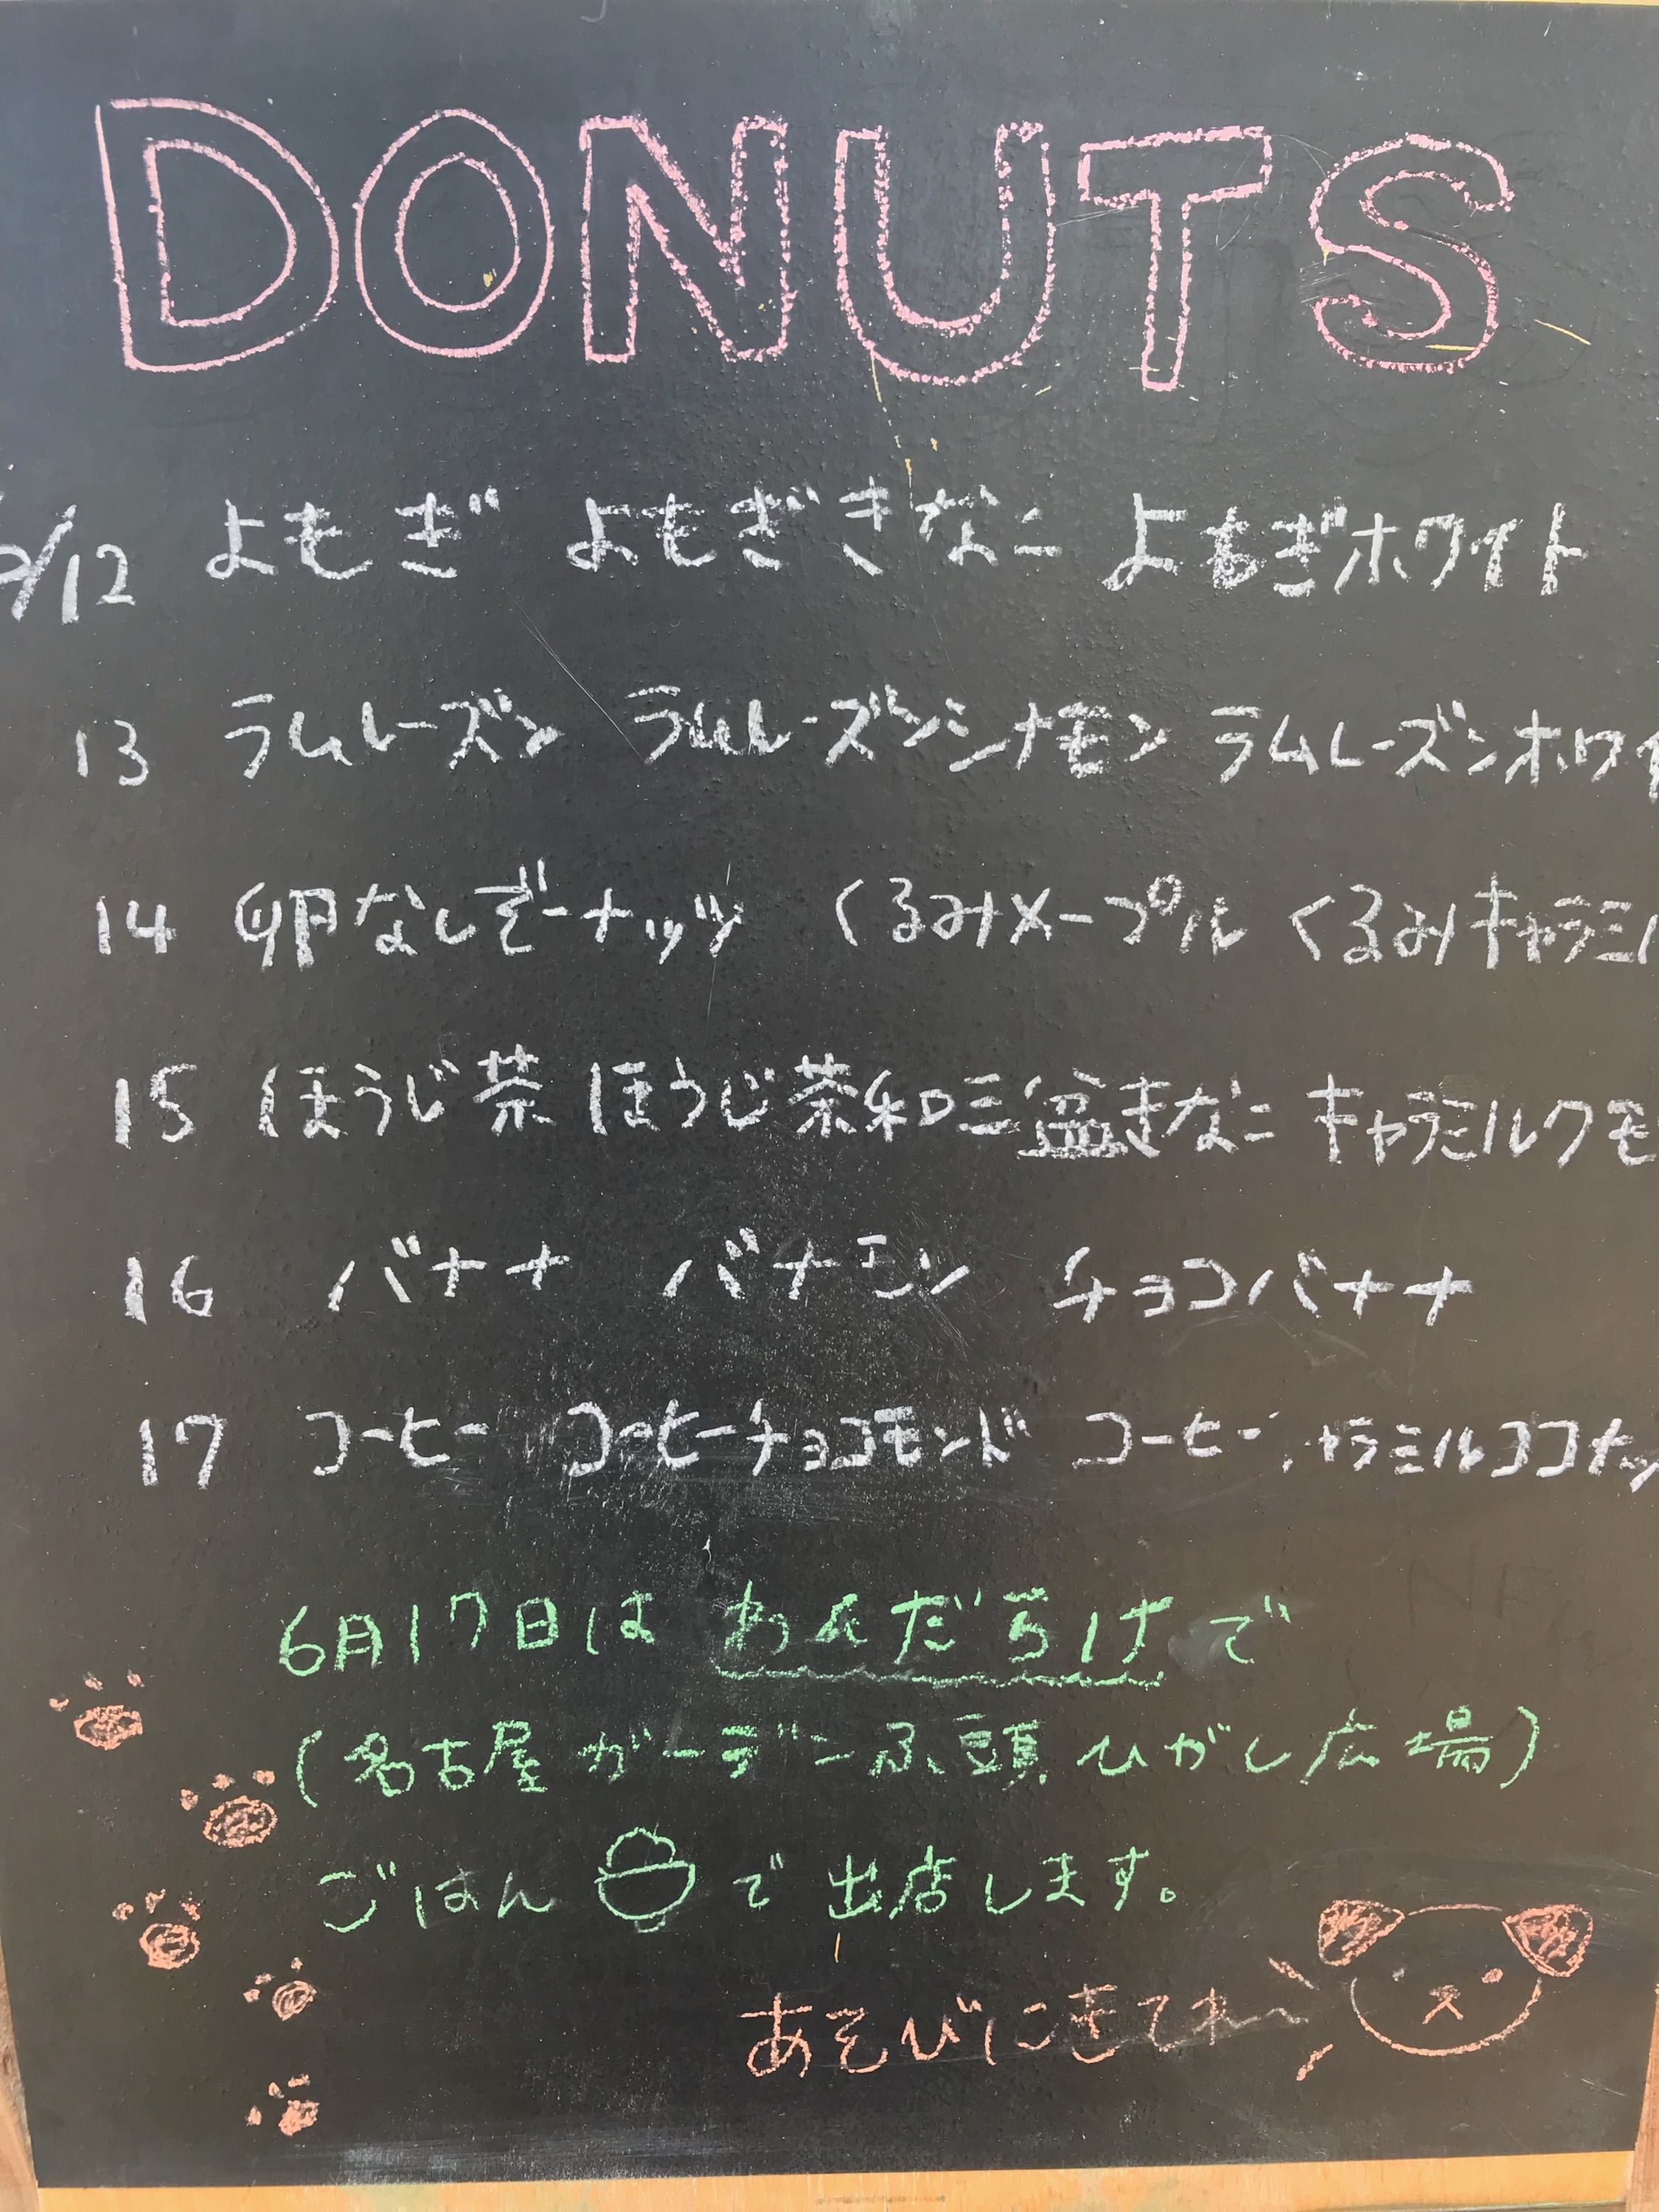 DONUTS
/12 よもぎ よもぎきなこ よもぎホワイト
13 ラムレーズン ラムレーズンシナモン ラムレーズンホワイ
14 卵なしどーナッツ くるみメープル くるみキャラミル
15 ほうじ茶 ほうじ茶和三盆きなこ キャラミルクモ
16 バナナ バナモン チョコバナナ
17 コーヒー コーヒーチョコモンド コーヒー ャラミルココナッ
6月17日は わんだらけで
(名古屋ガーデンふ頭 ひがし広場)
ごはん で 出店します。
あそびにきてね〜